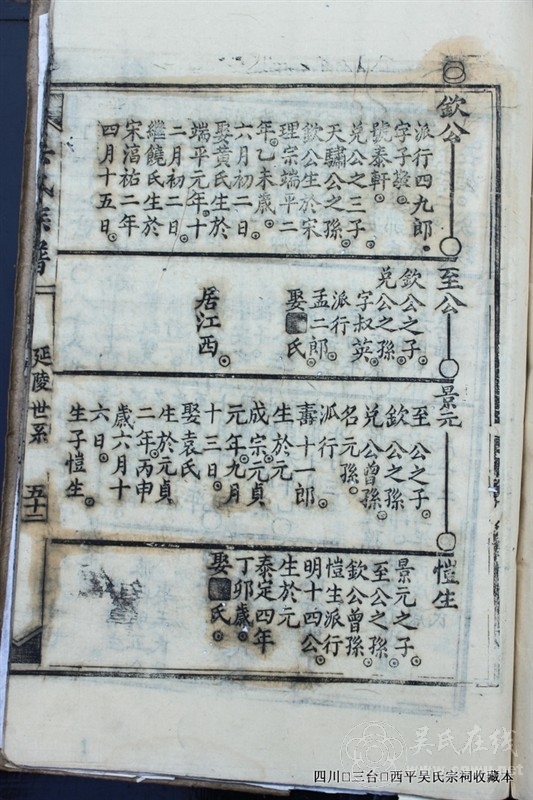 欽公
派行四九郎
字子
號泰軒
兌公之三子
天驌公之孫
欽公生於宋
理宗端平二
年乙未歲
六月初二日
娶黃氏生於
端平元年十
二月初二日
繼饒氏生於
宋淳祐二年
四月十五日
至公
欽公之子
兌公之孫
字叔英
派行
孟二郎
娶 氏
居江西
景元
至公之子
欽公之孫
兌公曾孫
名元孫
派行
壽十一郎
生於元
成宗元貞
元年九月
十三日
娶袁氏
生於元貞
二年丙申
歲六月十
六日
生子愷生
愷生
景元之子
至公之孫
欽公曾孫
愷生派行
明十四公
生於元
泰定四年
丁卯歲
娶 氏
氏族譜
延陵世系
五十二
吴氏在线
四川□三台□西平吴氏宗祠收藏本